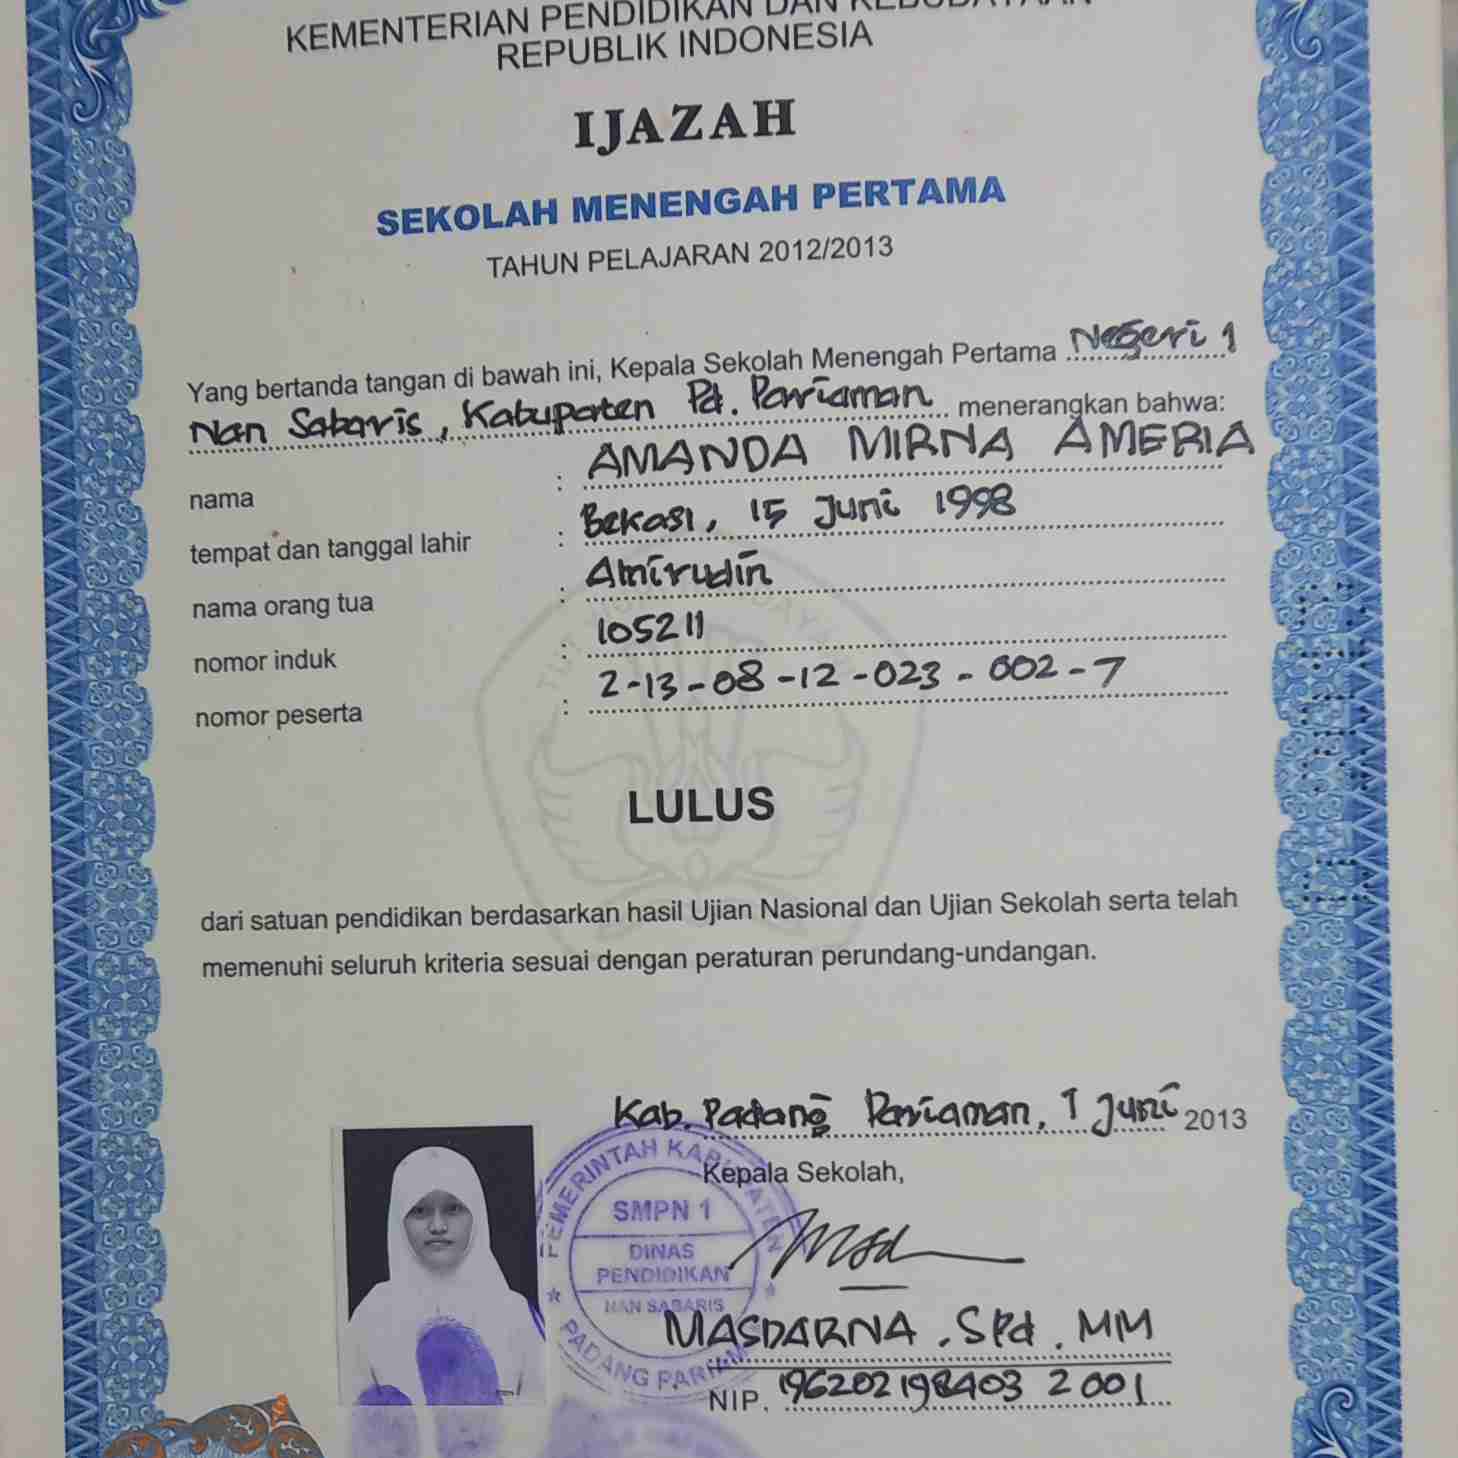 KEMENTERIAN PENDIDIKAN DAN KEBUDAYAAN
REPUBLIK INDONESIA
IJAZAH
SEKOLAH MENENGAH PERTAMA
TAHUN PELAJARAN 2012/2013
Yang bertanda tangan di bawah ini, Kepala Sekolah Menengah Pertama Negeri 1
Nan Sabaris, Kabupaten Pd. Pariaman menerangkan bahwa:
nama : AMANDA MIRNA AMERIA
tempat dan tanggal lahir : Bekasi, 15 Juni 1998
nama orang tua : Amirudin
nomor induk : 105211
nomor peserta : 2-13-08-12-023-002-7
LULUS
dari satuan pendidikan berdasarkan hasil Ujian Nasional dan Ujian Sekolah serta telah
memenuhi seluruh kriteria sesuai dengan peraturan perundang-undangan.
Kab. Padang Pariaman, 1 Juni 2013
Kepala Sekolah,
PEMERINTAH KABUPATEN
SMPN 1
DINAS
PENDIDIKAN
NAN SABARIS
PADANG PARIAM
MASDARNA, SPd. MM
NIP. 196202198403 2 001